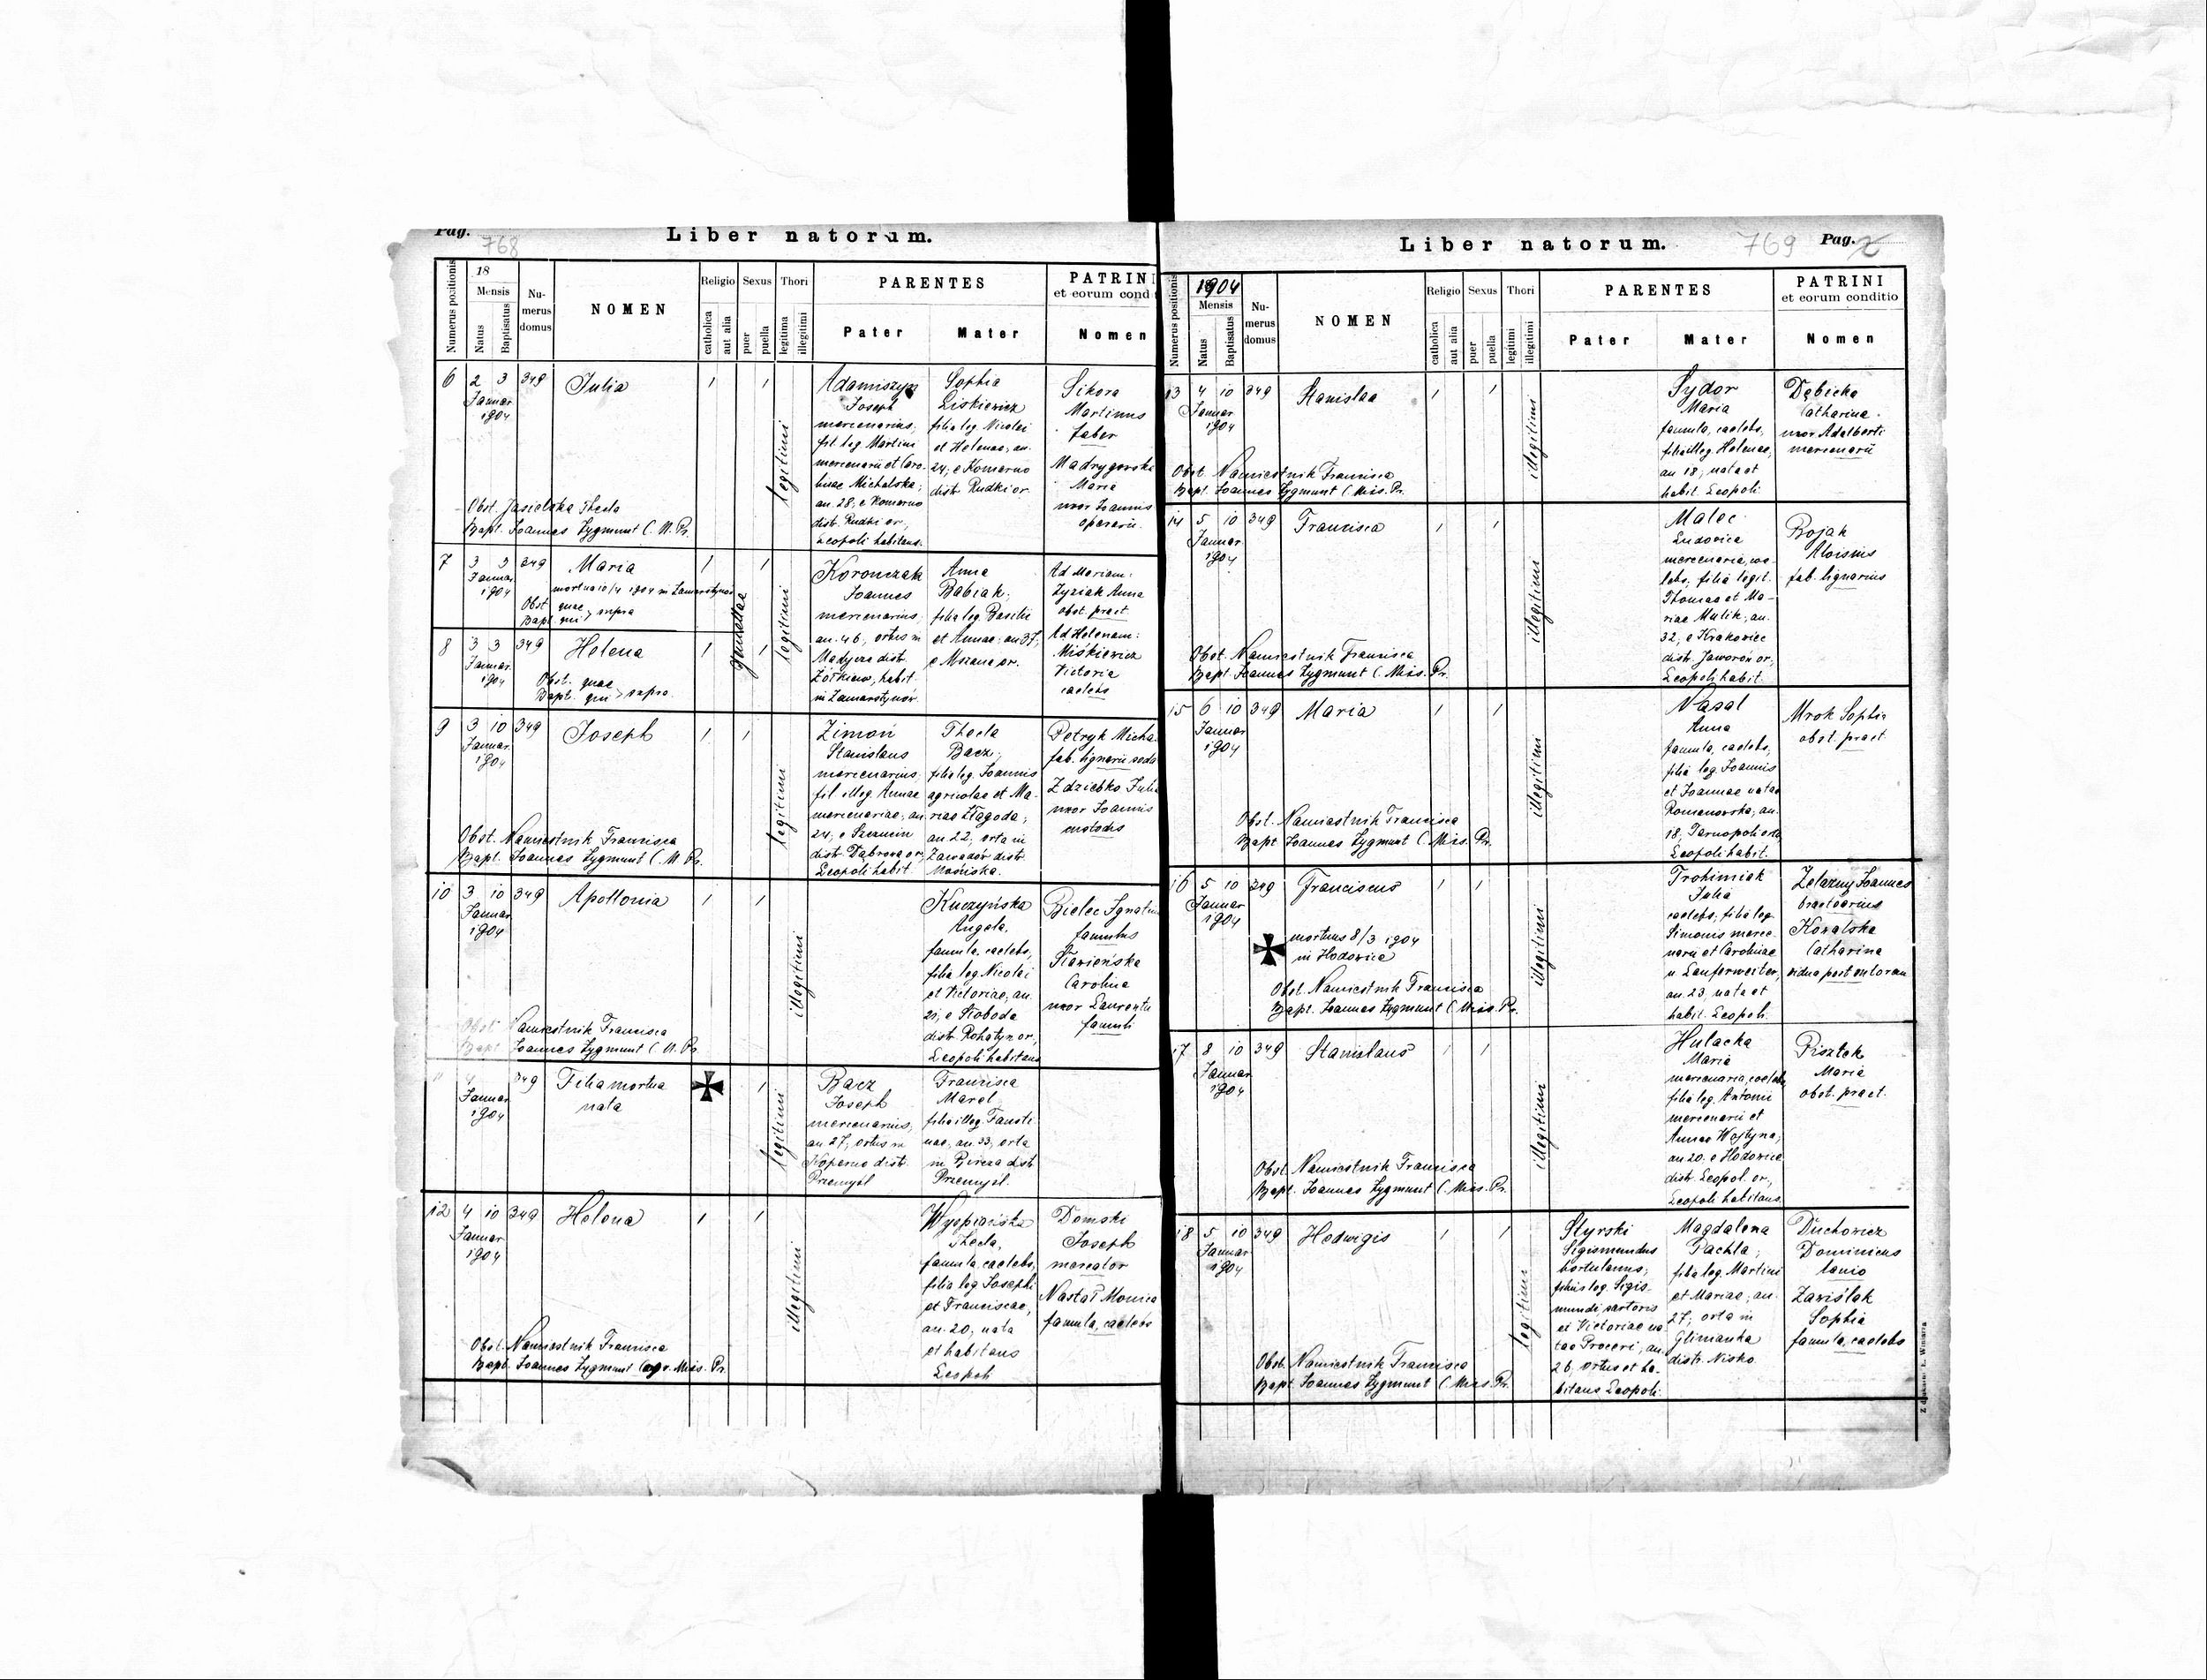 Pag. 768
Liber natorum.
Numerus positionis
18
Mensis
Natus
Baptisatus
Nu-
merus
domus
NOMEN
Religio
catholica
aut alia
Sexus
puer
puella
Thori
legitima
illegitimi
PARENTES
Pater
Mater
PATRINI
et eorum cond
Nomen
6
2 3
Januar
1904
349
Julia
legitimi
Adamiszyn
Joseph
mercenarius,
fil. leg. Martini
mercenarii et Caro-
linae Michalska;
an. 28, e Komarno
distr. Rudki or.,
Leopoli habitans.
Sophia
Liskiewicz
filia leg. Nicolai
et Helenae, an.
24; e Komarno
distr. Rudki or.
Sikora
Martinus
faber
Madrygorska
Maria
uxor Joannis
operarii.
Obst. Jasielska Thecla
Bapt. Joannes Zygmunt C. M. Pr.
7
3 3
Januar
1904
349
Maria
mortua 10/4 1904 in Zamarstynów
Obst. quae
Bapt. qui > supra
gemellae
legitimi
Koronczak
Joannes
mercenarius,
an. 46, ortus in
Madyera distr.
Żółkiew, habit.
in Zamarstynów
Anna
Babiak;
filia leg. Basilii
et Annae, an 37,
e Mszana or.
Ad Mariam:
Zyziak Anna
obst. pract
Ad Helenam:
Miśkiewicz
Victoria
caelebs
8
3 3
Januar
1904
349
Helena
Obst. quae
Bapt. qui > supra.
9
3 10
Januar
1904
349
Joseph
legitimi
Zimoń
Stanislaus
mercenarius,
fil. illeg. Annae
mercenariae, an
24, e Szczucin
distr. Dąbrowa or,
Leopoli habit.
Thecla
Bacz;
filia leg. Joannis
agricolae et Ma-
riae Łagoda;
an 22; orta in
Zawadów distr.
Mościska.
Petryk Micha
fab. lignarii soda
Zdziebko Julia
uxor Joannis
custodis
Obst. Namiestnik Francisca
Bapt. Joannes Zygmunt C. M. Pr.
10
3 10
Januar
1904
349
Apollonia
illegitimi
Kuczyńska
Angela,
famula, caelebs,
filia leg. Nicolai
et Victoriae, an.
21; e Słoboda
distr. Rohatyn or,
Leopoli habitans
Bielec Ignatius
famulus
Sławieńska
Carolina
uxor Laurentii
famuli
Obst. Namiestnik Francisca
Bapt. Joannes Zygmunt C. M. Pr.
11
4
Januar
1904
349
Filia mortua
nata
legitimi
Bacz
Joseph
mercenarius,
an 27, ortus in
distr.
Przemyśl
Francisca
Marel
filia illeg. Fausti-
nae, an. 33, orta
in Bircza distr.
Przemyśl.
12
4 10
Januar
1904
349
Helena
illegitimi
Wyspiańska
Thecla,
famula, caelebs,
filia leg Josephi
et Franciscae,
an. 20, nata
et habitans
Leopoli
Domski
Joseph
mercator
Nastał Monica
famula, caelebs
Obst. Namiestnik Francisca
Bapt. Joannes Zygmunt Coop. Miss. Pr.
Liber natorum.
769 Pag. 2
Numerus positionis
1904
Mensis
Natus
Baptisatus
Nu-
merus
domus
NOMEN
Religio
catholica
aut alia
Sexus
puer
puella
Thori
legitimi
illegitimi
PARENTES
Pater
Mater
PATRINI
et eorum conditio
Nomen
13
4 10
Januar
1904
349
Stanislaa
illegitimi
Sydor
Maria
famula, caelebs,
filia illeg. Helenae,
an 18; nata et
habit. Leopoli
Dębicka
Catharina
uxor Adalberti
mercenarii
Obst. Namiestnik Francisca
Bapt. Joannes Zygmunt C. Miss. Pr.
14
5 10
Januar
1904
349
Francisca
illegitimi
Malec
Ludovica
mercenaria, cae-
lebs, filia legit.
Thomae et Ma-
riae Mulik, an.
32; e Krakowiec
distr. Jaworów or.,
Leopoli habit.
Bojak
Aloisius
fab. lignarius
Obst. Namiestnik Francisca
Bapt. Joannes Zygmunt C. Miss. Pr.
15
6 10
Januar
1904
349
Maria
illegitimi
Nasal
Anna
famula, caelebs,
filia leg. Joannis
et Joannae natae
Romanowska, an.
18; Tarnopoli orta,
Leopoli habit.
Mrok Sophia
obst. pract.
Obst. Namiestnik Francisca
Bapt. Joannes Zygmunt C. Miss. Pr.
16
5 10
Januar
1904
349
Franciscus
mortuus 8/3 1904
in Hodowica
illegitimi
Trohimiak
Julia
caelebs, filia leg.
Simonis merce-
narii et Carolinae
n. Lauferweiler,
an. 23, nata et
habit. Leopoli.
Zelazny Joannes
Kowalska
Catharina
vidua post
Obst. Namiestnik Francisca
Bapt. Joannes Zygmunt C. Miss. Pr.
17
8 10
Januar
1904
349
Stanislaus
illegitimi
Hulacka
Maria
mercenaria, caelebs
filia leg. Antonii
mercenarii et
Annae Wojtyna;
an 20; e Hodowica
distr. Leopol. or.,
Leopoli habitans.
Pisztek
Maria
obst. pract.
Obst. Namiestnik Francisca
Bapt. Joannes Zygmunt C. Miss. Pr.
18
5 10
Januar
1904
349
Hedwigis
legitimi
Styrski
Sigismundus
hortulanus,
filius leg. Sigis-
mundi sartoris
et Victoriae na-
tae Proceri, an.
26, ortus et ha-
bitans Leopoli.
Magdalena
Pachla;
filia leg. Martini
et Mariae, an.
27; orta in
Glinianka
distr. Nisko
Duchowicz
Dominicus
lanio
Zawiślak
Sophia
famula, caelebs
Obst. Namiestnik Francisca
Bapt. Joannes Zygmunt C. Miss. Pr.